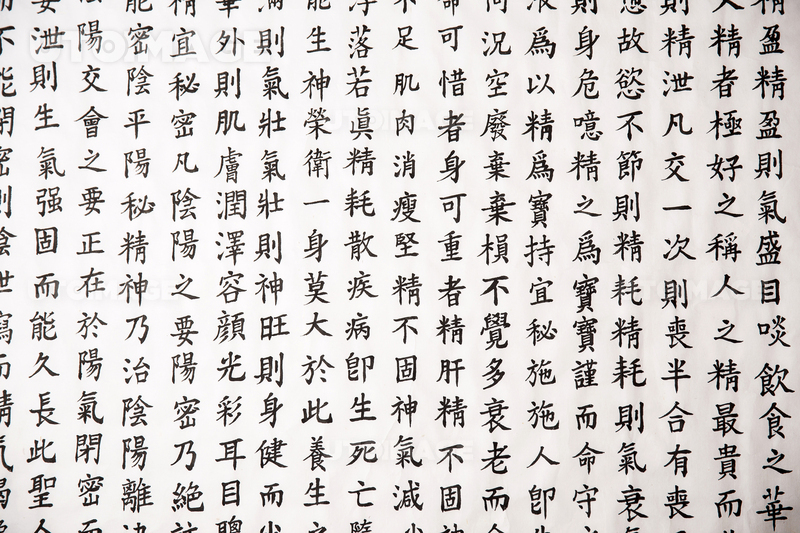 精盈精盈則氣盛目啖飲食之華
人精者極好之稱人之精最貴而
則精泄凡交一次則喪半合有喪
故慾不節則精耗精耗則氣衰
則身危噫精之爲寶寶謹而命守
液爲以精爲寶持宜秘施施人卽
何況空廢棄棄損不覺多衰老而
命可惜者身可重者精肝精不固
不足肌肉消瘦堅精不固神氣減
落若眞精耗散疾病卽生死亡
能生神榮衛一身莫大於此養生
滿則氣壯氣壯則神旺則身健而
華外則肌膚潤澤容顔光彩耳目
精宜秘密凡陰陽之要陽密乃絶
能密陰平陽秘精神乃治陰陽離
陽交會之要正在於陽氣閉密而
要泄則生氣强固而能久長此聖人
不能閉密則陰泄寫而精氣竭
UTOIMAGE